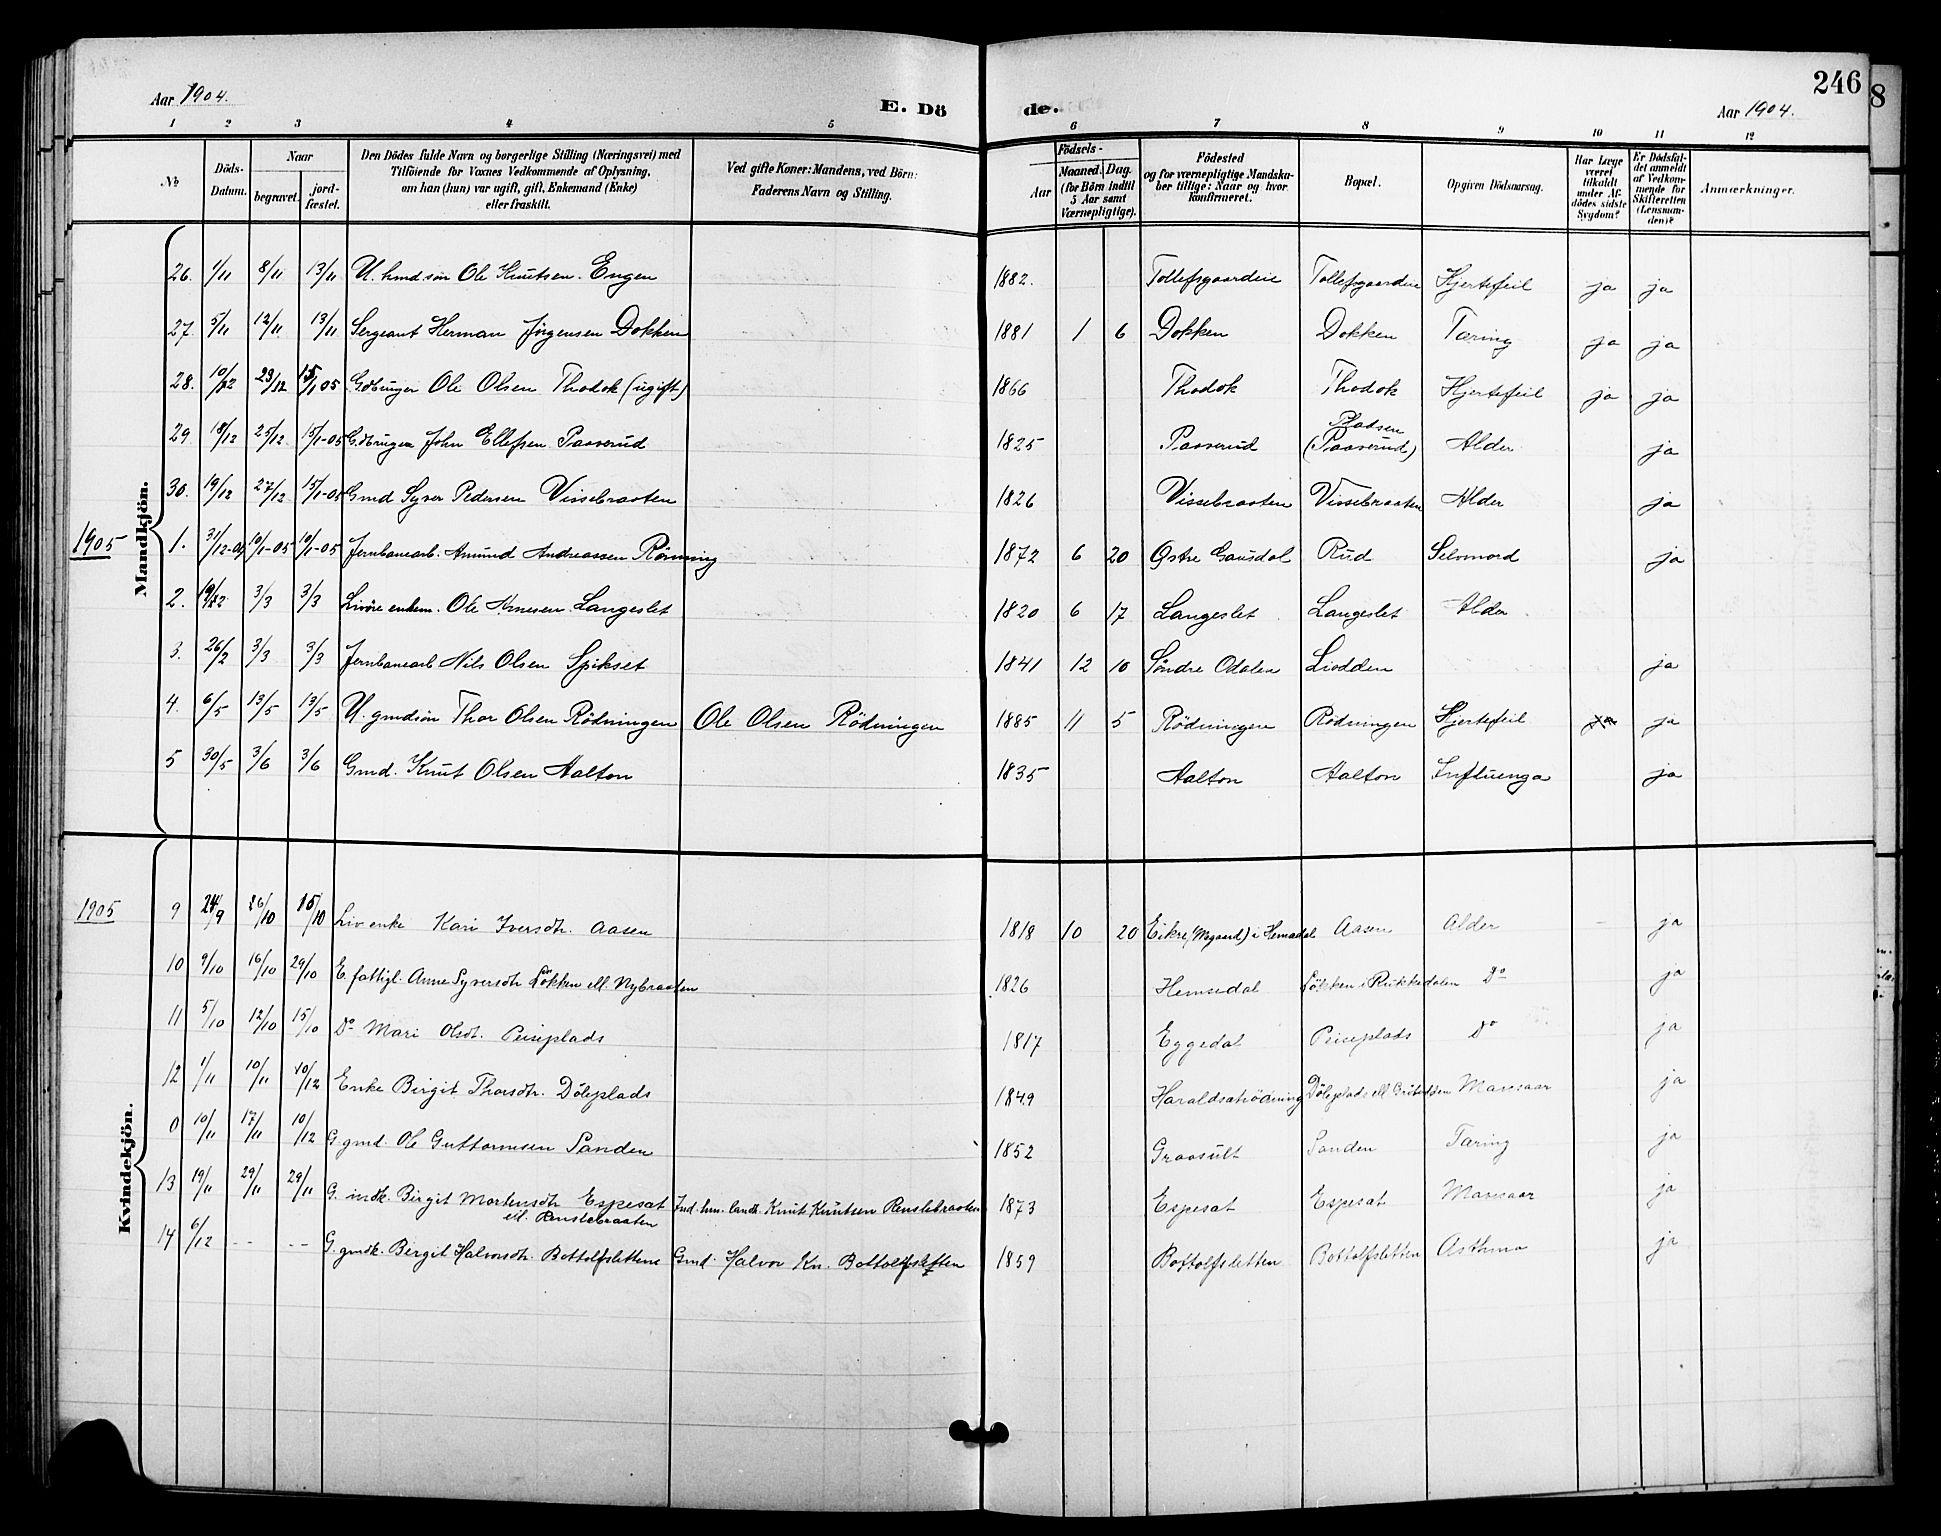 Aar 1904.
E. Döde.
246
Aar 1904.
8
1 2 3 4 5 6 7 8 9 10 11 12
No
Döds-Datum.
Naar
begravet.
jord-fæstet.
Den Dödes fulde Navn og borgerlige Stilling (Næringsvei) med
Tilföiende for Voxnes Vedkommende af Oplysning,
om han (hun) var ugift, gift, Enkemand (Enke)
eller fraskilt.
Ved gifte Koner: Mandens, ved Börn:
Faderens Navn og Stilling.
Aar
Födsels-
Maaned. Dag.
(for Börn indtil
5 Aar samt
Værnepligtige).
Födested
og for værnepligtige Mandska-
ber tillige: Naar og hvor
konfirmeret.
Bopæl.
Opgiven Dödsaarsag.
Har Læge
været
tilkaldt
under Af-
dödes sidste
Sygdom?
Er Dödsfal-
det anmeldt
af Vedkom-
mende for
Skifteretten
(Lensman-
den)?
Anmærkninger.
Mandkjön.
26. 1/11 8/11 13/11 U. hmd. sön Ole Knutsen Engen 1882. Tollefsgaardeie Tollefsgaardeie Hjertefeil ja ja
27. 5/11 12/11 13/11 Sergeant Herman Jörgensen Dokken 1881 1 6 Dokken Dokken Tæring ja ja
28. 10/12 23/12 15/1 05 Gdbruger Ole Olsen Thodok (ugift) 1866 Thodok Thodok Hjertefeil ja ja
29 18/12 25/12 15/1-05 Gdbruger John Ellefsen Paaverud 1825 Paaverud Pladsen (Paaverud) Alder ja
30. 19/12 27/12 15/1-05 Gmd Syver Pedersen Vissebraaten 1826 Vissebraaten Vissebraaten Alder ja
1905
1. 31/12-04 10/1-05 10/1-05 Jernbanearb. Amund Andreassen Rönning 1872 6 20 Östre Gausdal Rud Selvmord ja
2. 19/2 3/3 3/3 Livöre enkem. Ole Arnesen Langeslet 1820 6 17 Langeslet Langeslet Alder
3. 26/2 3/3 3/3 Jernbanearb Nils Olsen Spikset 1841 12 10 Söndre Odalen Liodden ja
4. 6/5 13/5 13/5 U. gmdsön Thor Olsen Rödningen Ole Olsen Rödningen 1885 11 5 Rödningen Rödningen Hjertefeil ja ja
5 30/5 3/6 3/6 Gmd. Knut Olsen Aalton 1835 Aalton Aalton Influenza ja
Kvindekjön.
1905
9 24/9 6/10 15/10 Liv enke Kari Iversdtr. Aasen 1818 10 20 Eikre i Hemsedal Aasen Alder ja
10 9/10 16/10 29/10 E fattigl. Anne Syversdtr Lökken ell Nybraaten 1826 Hemsedal Lökken i Rukkedalen Do ja
11 5/10 12/10 15/10 Do Mari Olsdt. Peiseplads 1817 Eggedal Peiseplads Do ja
12 1/11 10/11 10/12 Enke Birgit Thorsdtr. Döleplads 1849 Haraldsetrödning Döleplads ell Mavesaar ja
0 10/11 17/11 10/12 G. gmd. Ole Guttormsen Sanden 1852 Graasult Sanden Tæring ja
13 19/11 29/11 29/11 G. indk. Birgit Mortensdtr Espesat
ell. Renslebraaten Ind. hm. landh. Knut Knutsen Renslebraaten 1873 Espesat Espesat Mavesaar ja
14 6/12 -- -- G. gmdk. Birgit Halvorsdtr. Bottolfsletten Gmd. Halvor Kn. Bottolfsletten 1859 Bottolfsletten Bottolfsletten Asthma ja